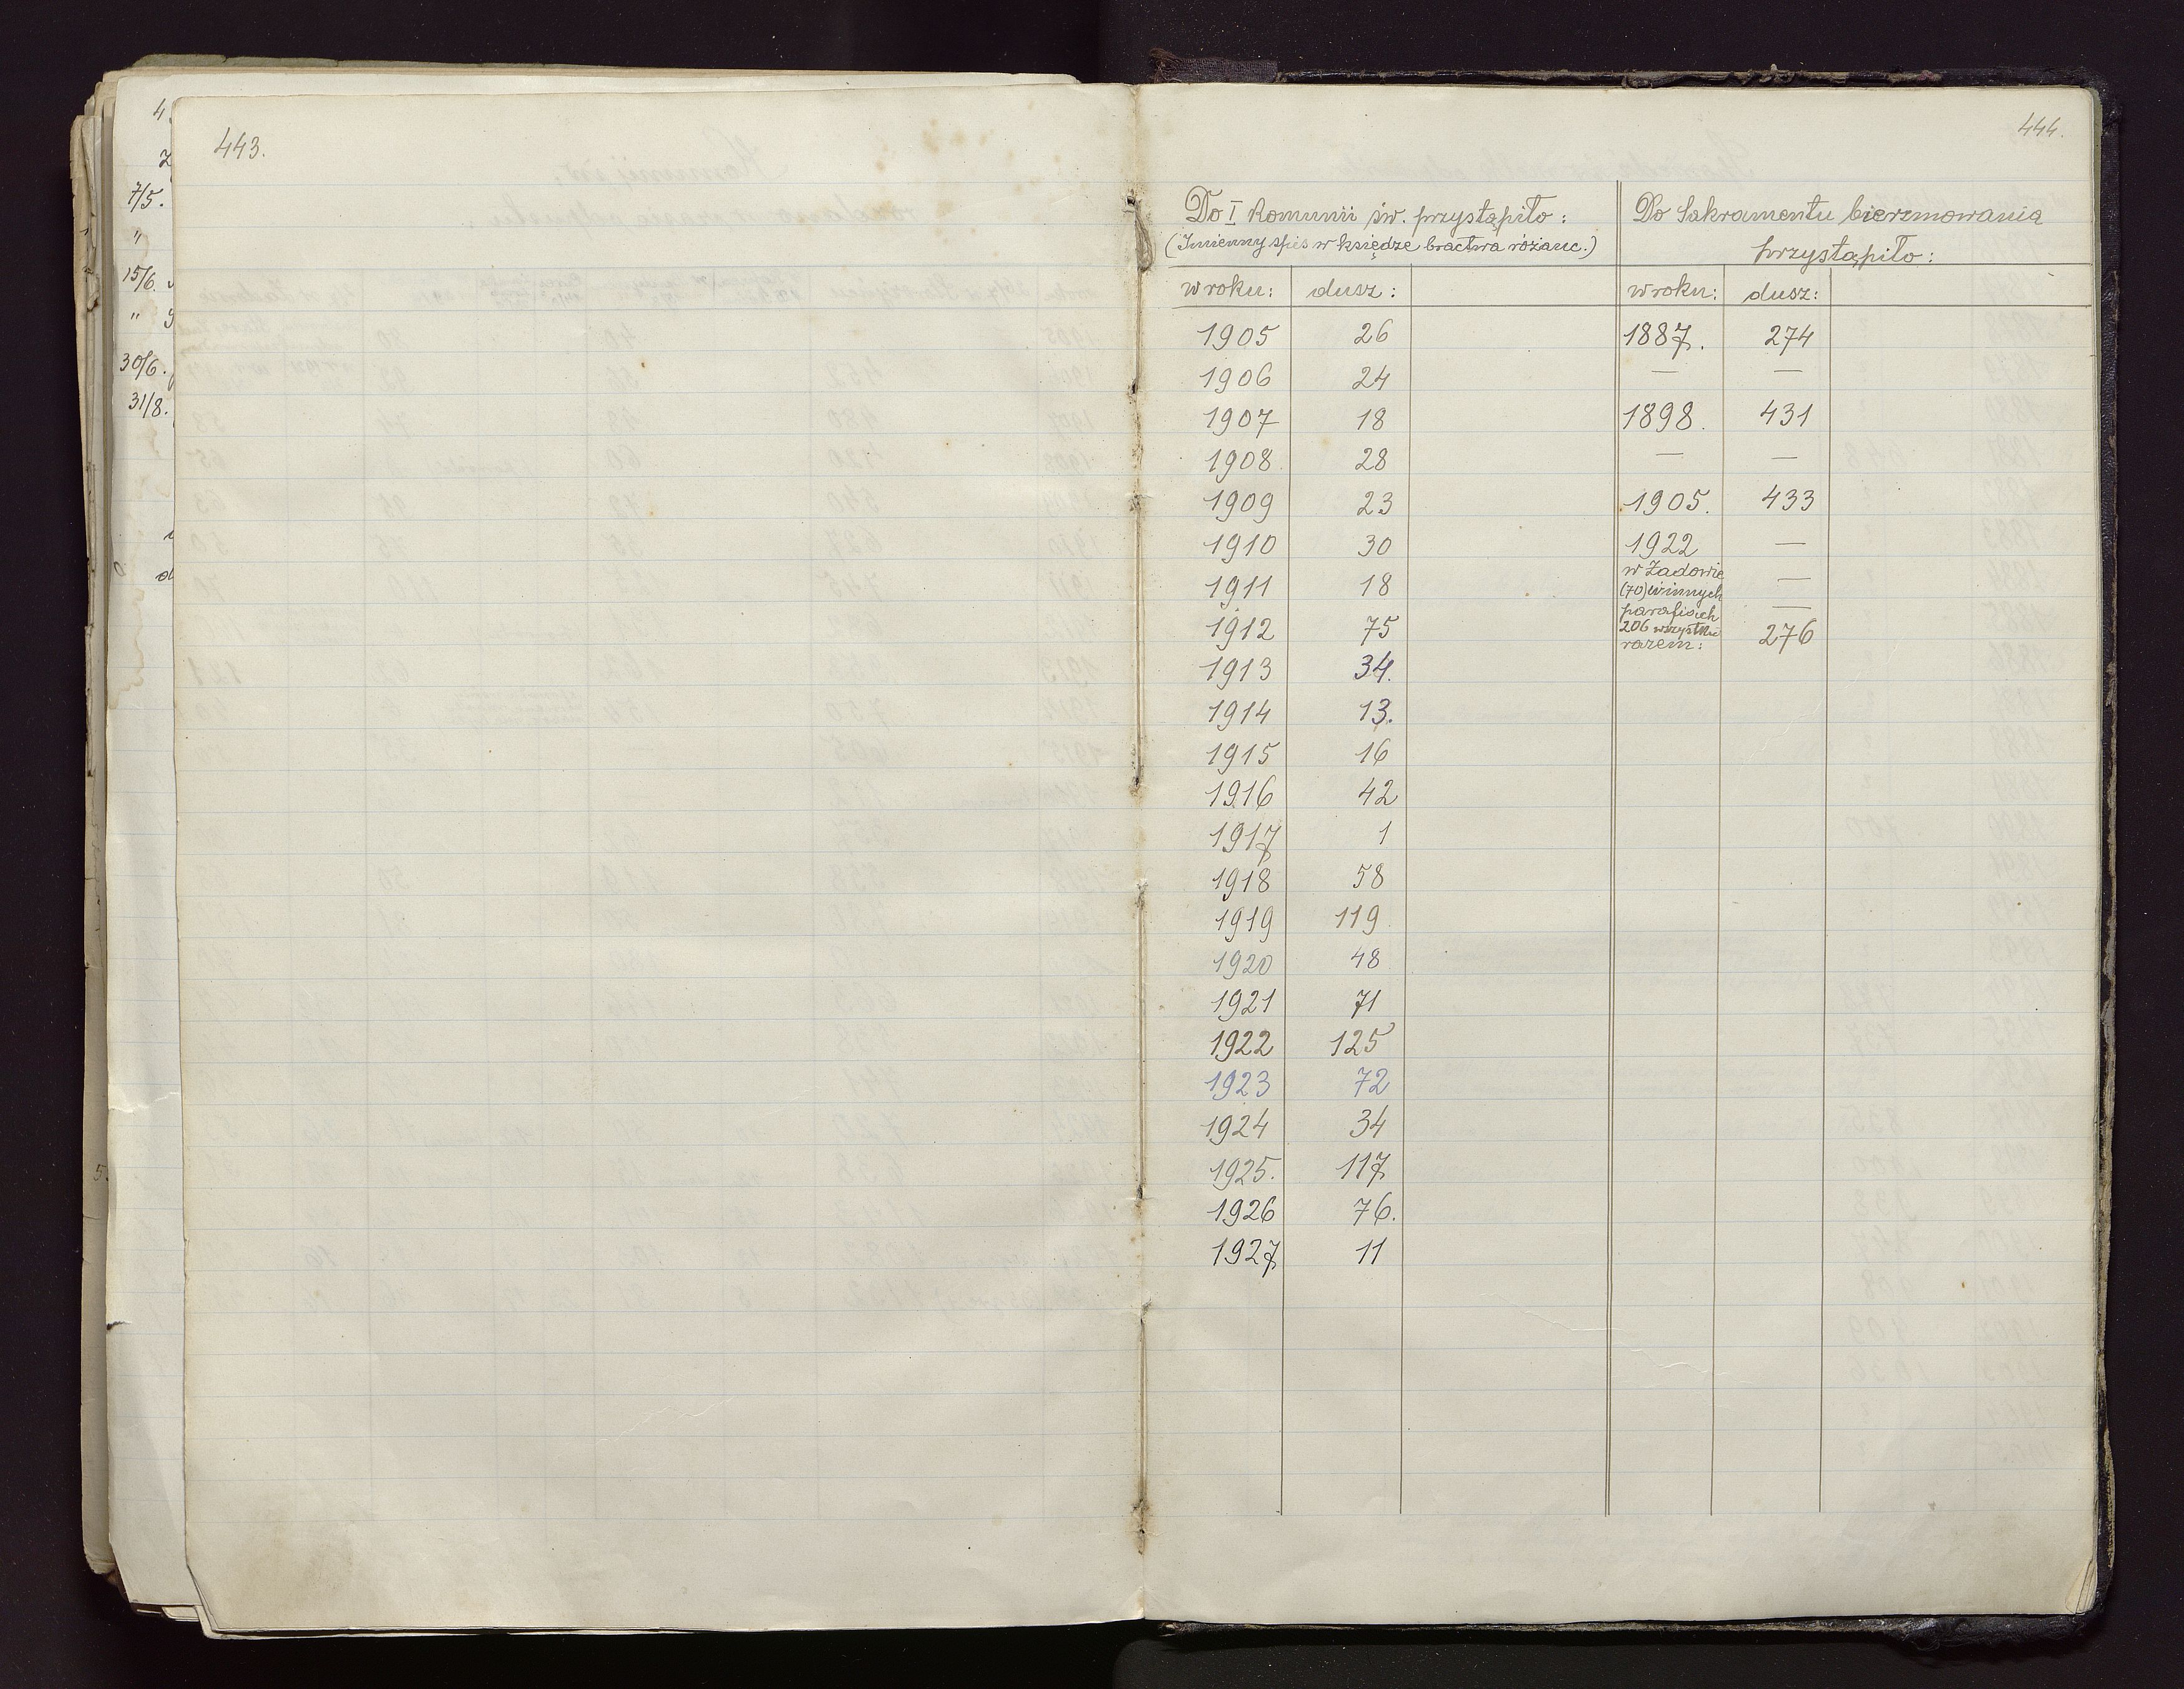 443.
7/5.
"
15/6.
"
30/6.
31/8.
444.
Do I Komunii św. przystąpiło:
(Imienny spis w księdze bractwa różanc.)
w roku: dusz:
1905 26
1906 24
1907 18
1908 28
1909 23
1910 30
1911 18
1912 75
1913 34.
1914 13.
1915 16
1916 42
1917 1
1918 58
1919 119
1920 48
1921 71
1922 125
1923 72
1924 34
1925. 117
1926 76.
1927 11
Do Sakramentu bierzmowania
przystąpiło:
w roku: dusz:
1887. 274
— —
1898. 431
— —
1905. 433
1922 —
w Żadowie —
(70) w innych
parafiach —
206 wszystkie
razem: 276